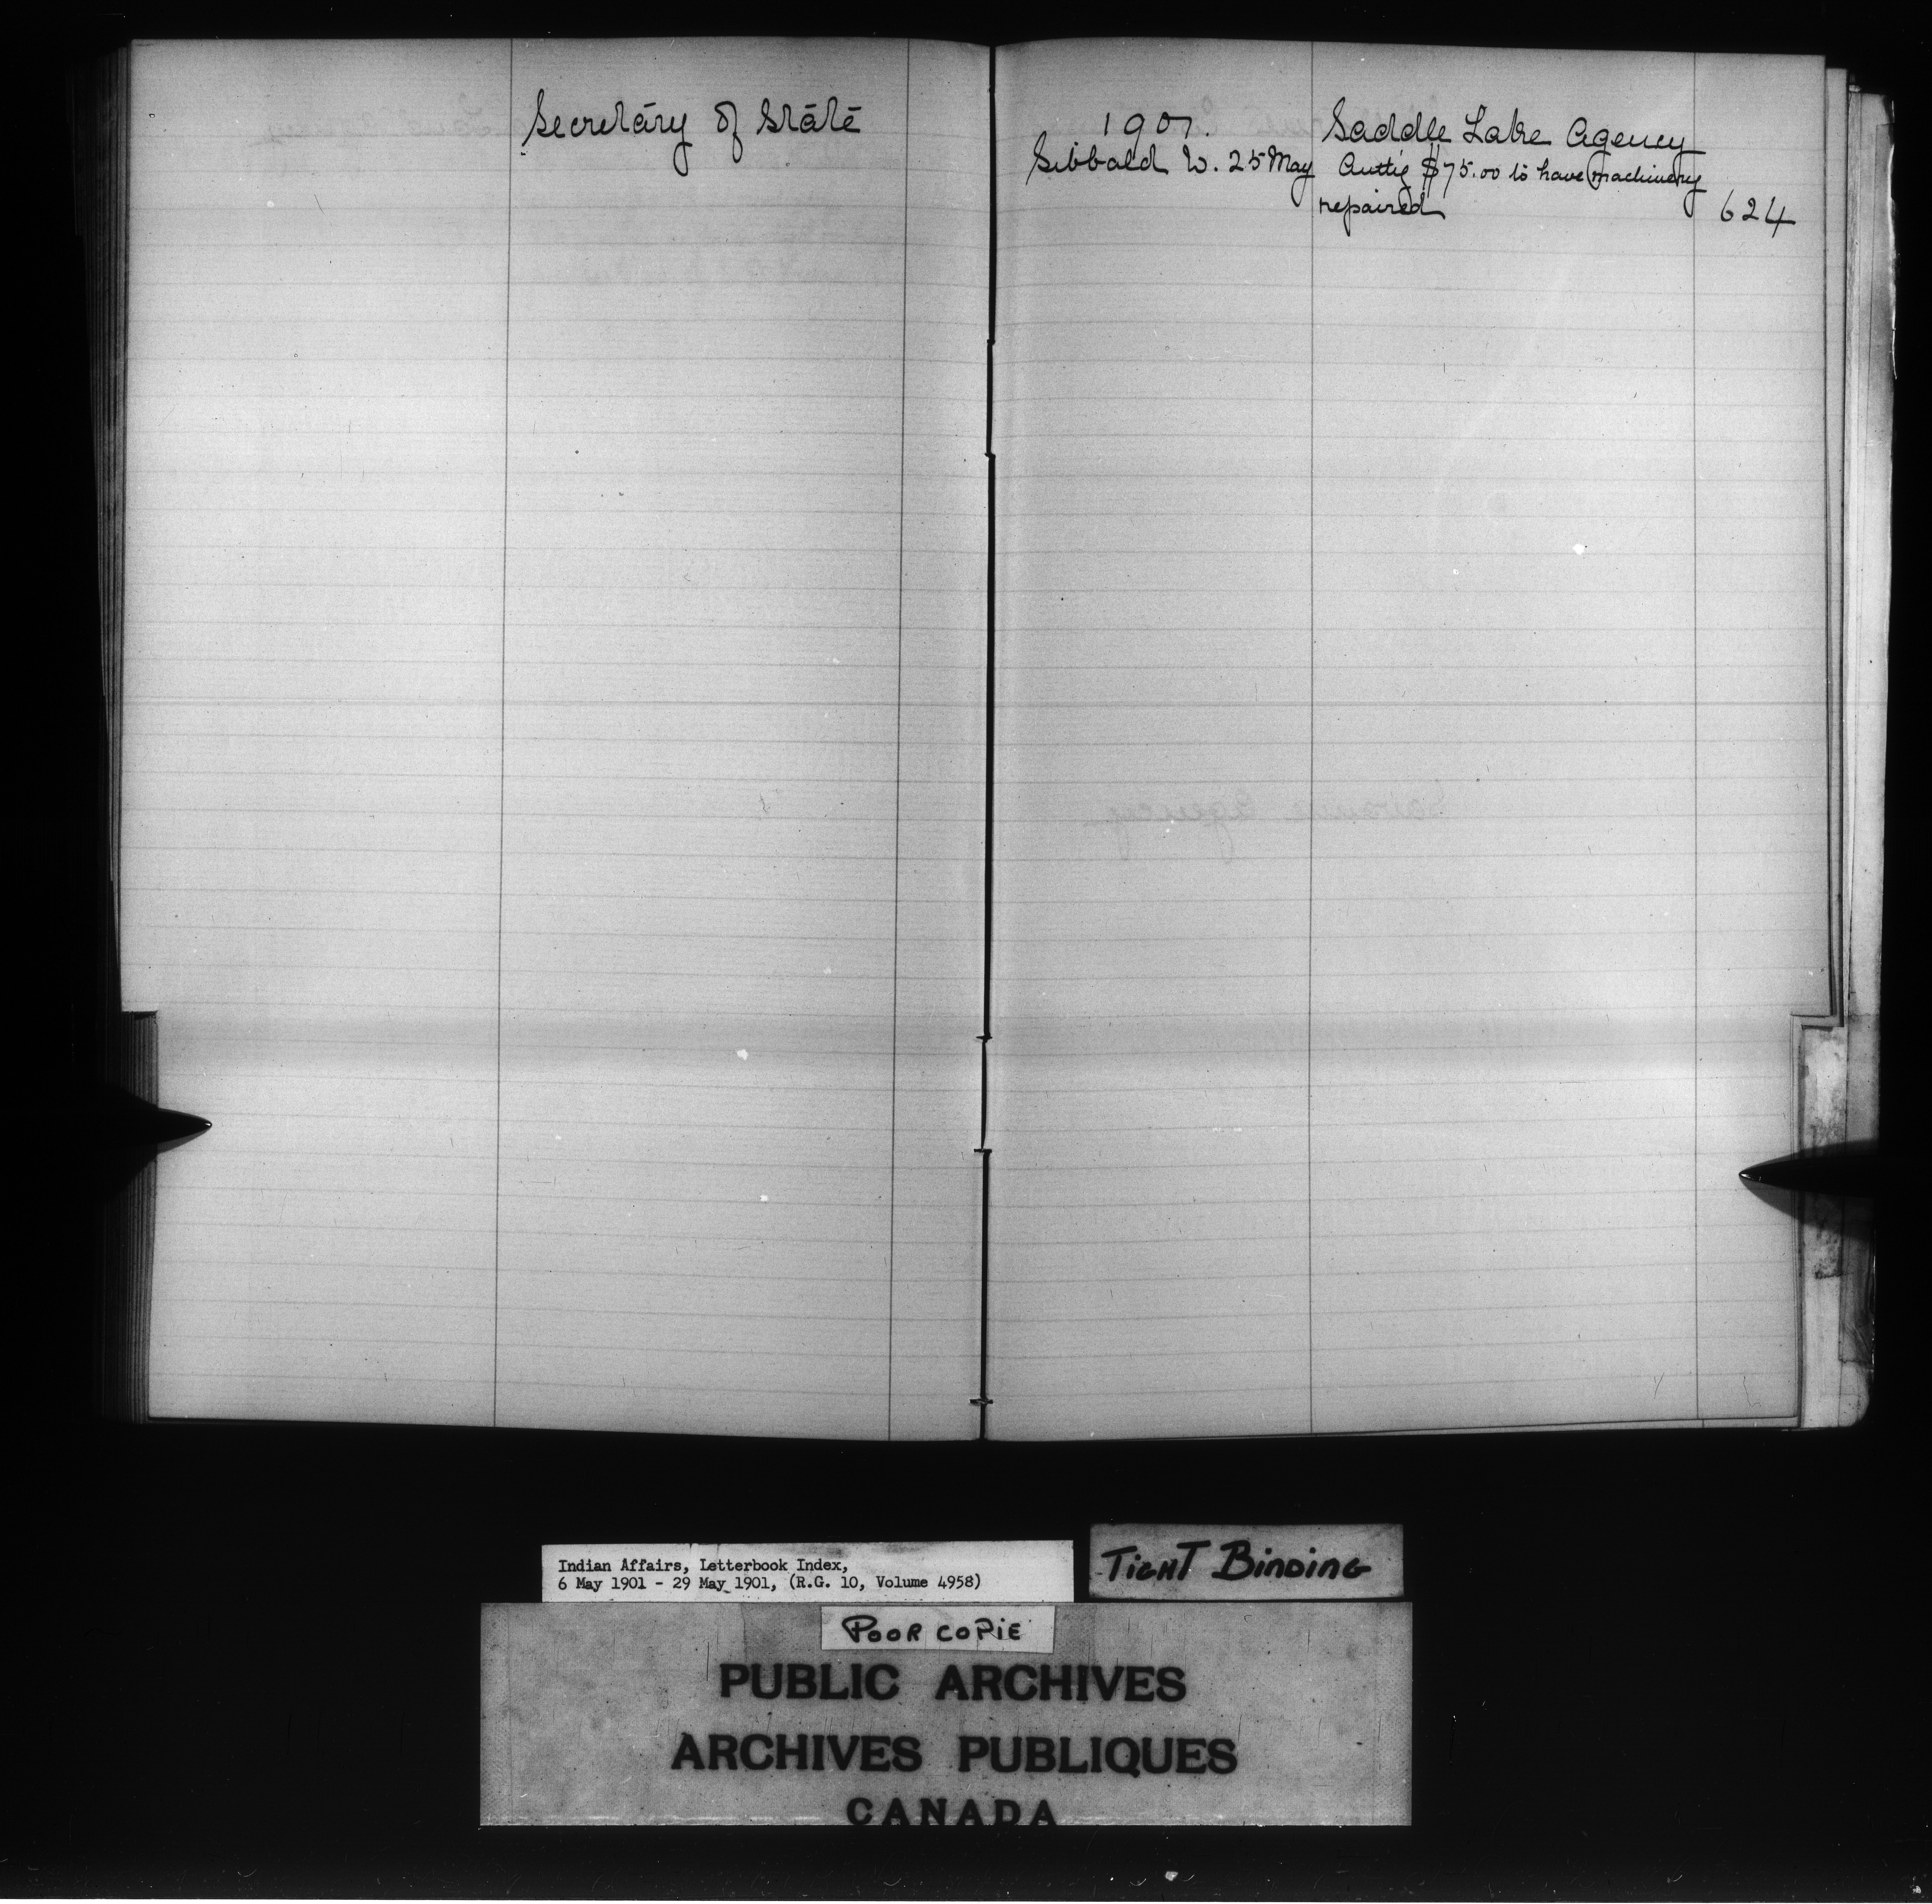 Secretary of State
1901.
Saddle Lake Agency
Sibbald W. 25 May Autty $75.00 to have machinery
repaired 624
Indian Affairs, Letterbook Index,
6 May 1901 - 29 May 1901, (R.G. 10, Volume 4958)
TIGHT BINDING
POOR COPIE
PUBLIC ARCHIVES
ARCHIVES PUBLIQUES
CANADA